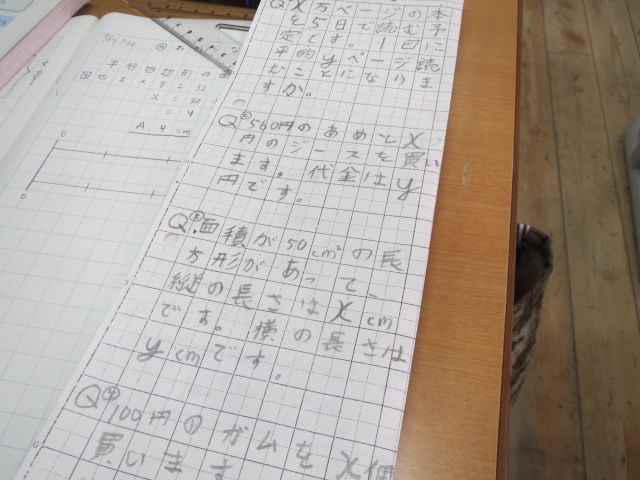 Q X万ページの本
を5日で読む予
定です。1日に
平均yページ読
むことになりま
すか。
Q② 560円のあめとX
円のジースを買い
ます。代金はy
円です。
Q③ 面積が50cm²の長
方形があって、
縦の長さはXcm
です。横の長さは
ycmです。
Q④ 100円のガムをX個
買います
平行四辺形の
X × 8 = 32
X = 32
= 4
A 4cm
0
0